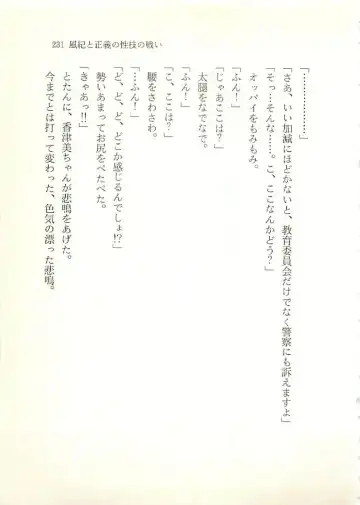 231 風紀と正義の性技の戦い
「……………………」
「さあ、いい加減にほどかないと、教育委員会だけでなく警察にも訴えますよ」
「そっ…そんな……。こ、ここなんかどう?」
オッパイをもみもみ。
「ふん!」
「じゃあここは?」
太腿をなでなで。
「ふん!」
「こ、ここは?」
腰をさわさわ。
「…ふん!」
「ど、ど、ど、どこか感じるんでしょ!?」
勢いあまってお尻をぺたぺた。
「きゃあっ!!」
とたんに、香津美ちゃんが悲鳴をあげた。
今までとは打って変わった、色気の漂った悲鳴。